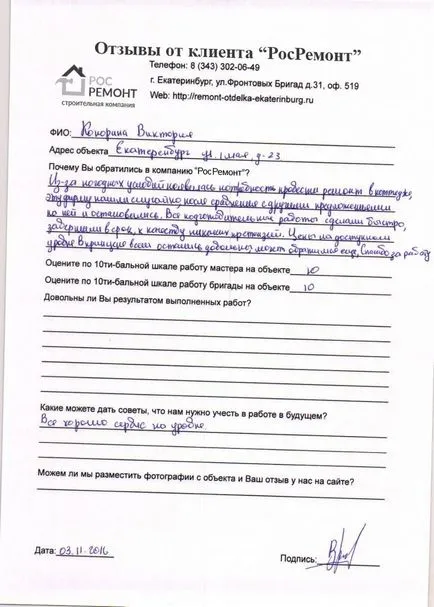 Отзывы от клиента “РосРемонт”
Телефон: 8 (343) 302-06-49
г. Екатеринбург, ул.Фронтовых Бригад д.31, оф. 519
Web: http://remont-otdelka-ekaterinburg.ru
РОС
РЕМОНТ
строительная компания
ФИО: Конорина Виктория
Адрес объекта Екатеренбург ул. 1 мая, д-23
Почему Вы обратились в компанию "РосРемонт"?
Из-за погодных условий появилась потребность провести ремонт в коттедже,
эту фирму нашли случайно, после сравнения с другими предложениями
на ней и остановились. Все подготовительные работы сделали быстро,
завершили в срок, к качеству никаких претензий. Цены на доступном
уровне в принципе всем остались довольны, может обратимся еще, спасибо за работу
Оцените по 10ти-бальной шкале работу мастера на объекте 10
Оцените по 10ти-бальной шкале работу бригады на объекте 10
Довольны ли Вы результатом выполненных работ?
Какие можете дать советы, что нам нужно учесть в работе в будущем?
Все хорошо сервис на уровне.
Можем ли мы разместить фотографии с объекта и Ваш отзыв у нас на сайте?
Дата: 03.11.2016
Подпись: